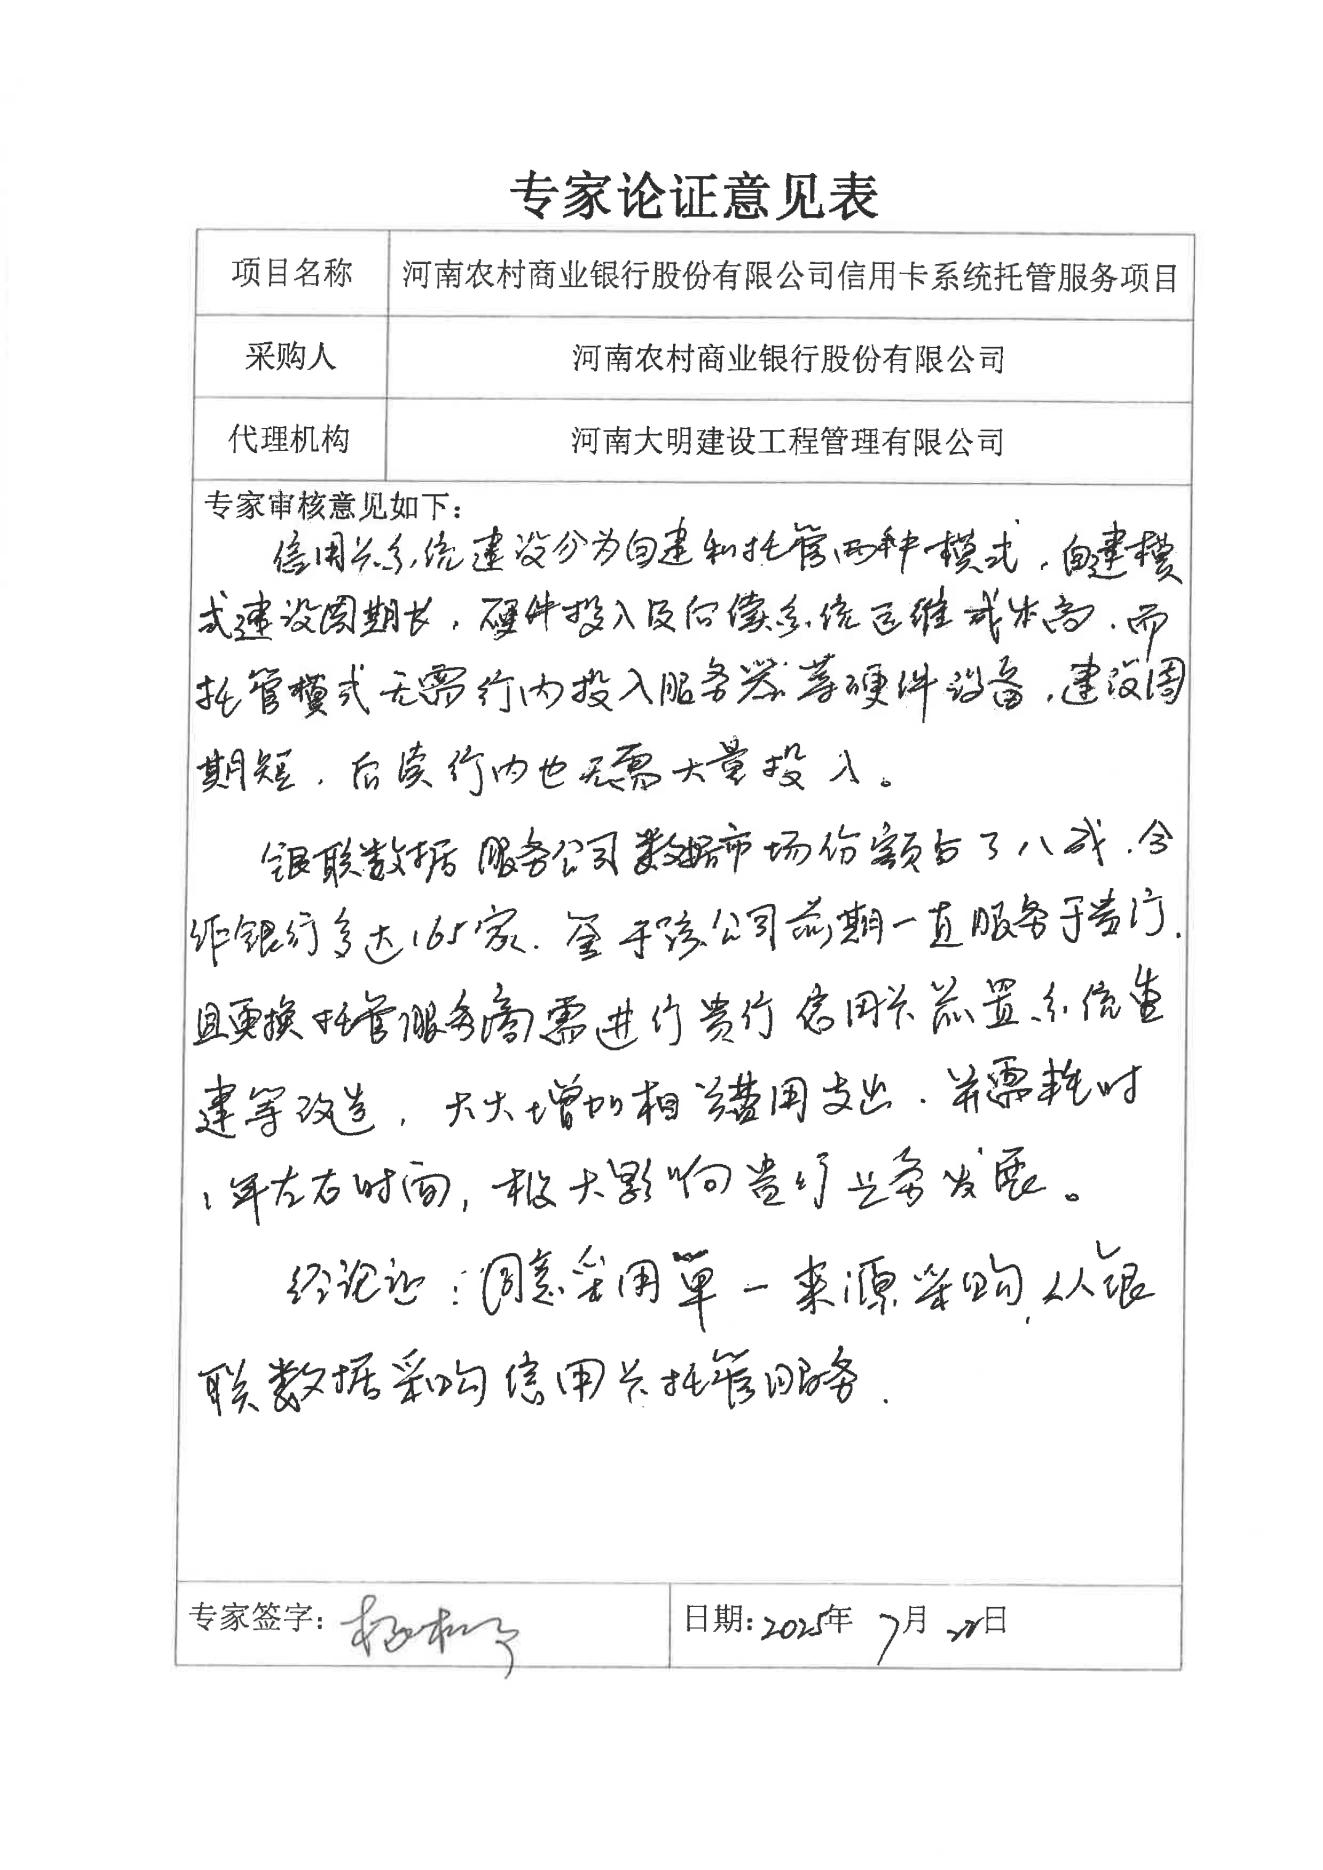 专家论证意见表
项目名称 河南农村商业银行股份有限公司信用卡系统托管服务项目
采购人 河南农村商业银行股份有限公司
代理机构 河南大明建设工程管理有限公司
专家审核意见如下：
信用卡系统建设分为自建和托管两种模式，自建模
式建设周期长，硬件投入及后续系统运维成本高，而
托管模式无需行内投入服务器等硬件设备，建设周
期短，后续行内也无需大量投入。
银联数据服务公司数据市场份额占了八成，合
作银行多达165家，鉴于该公司前期一直服务于贵行，
且更换托管服务商需进行贵行信用卡前置系统重
建等改造，大大增加相关费用支出，并需耗时
1年左右时间，极大影响贵行业务发展。
经论证：同意采用单一来源采购，从银
联数据采购信用卡托管服务.
专家签字：
日期：2025年 7月 日